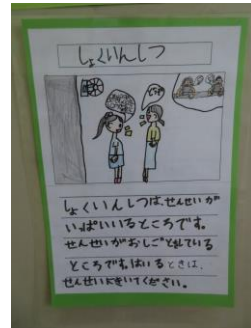 しょくいんしつ
しょくいんしつは、せんせいが
いっぱいいるところです。
せんせいがおしごとしている
ところです。はいるときは、
せんせいにきいてください。